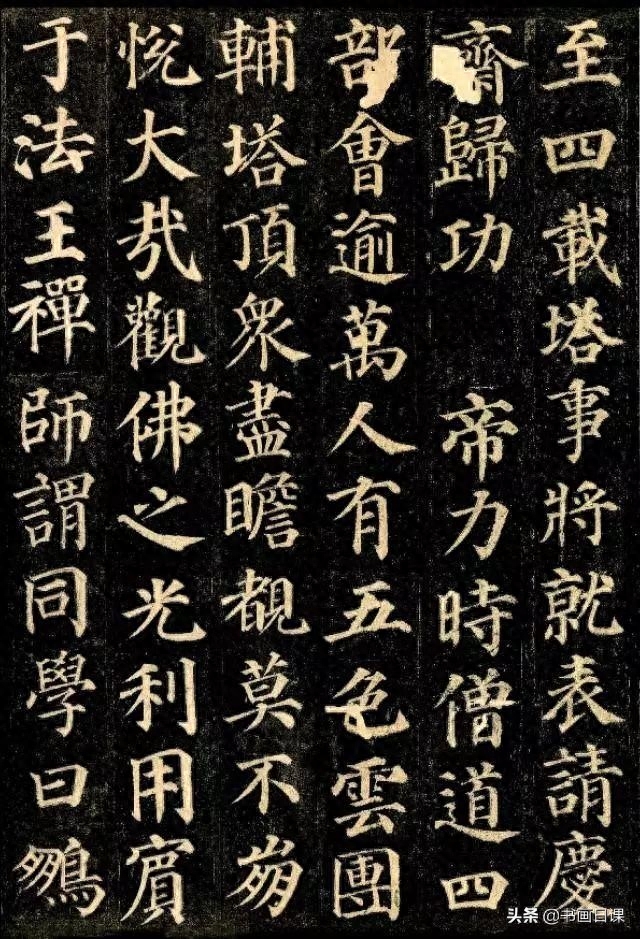 至四載塔事將就表請慶
齋歸功 帝力時僧道四
部會逾萬人有五色雲團
輔塔頂衆盡瞻覩莫不崩
悅大哉觀佛之光利用賓
于法王禪師謂同學曰鵬
头条 @书画日课